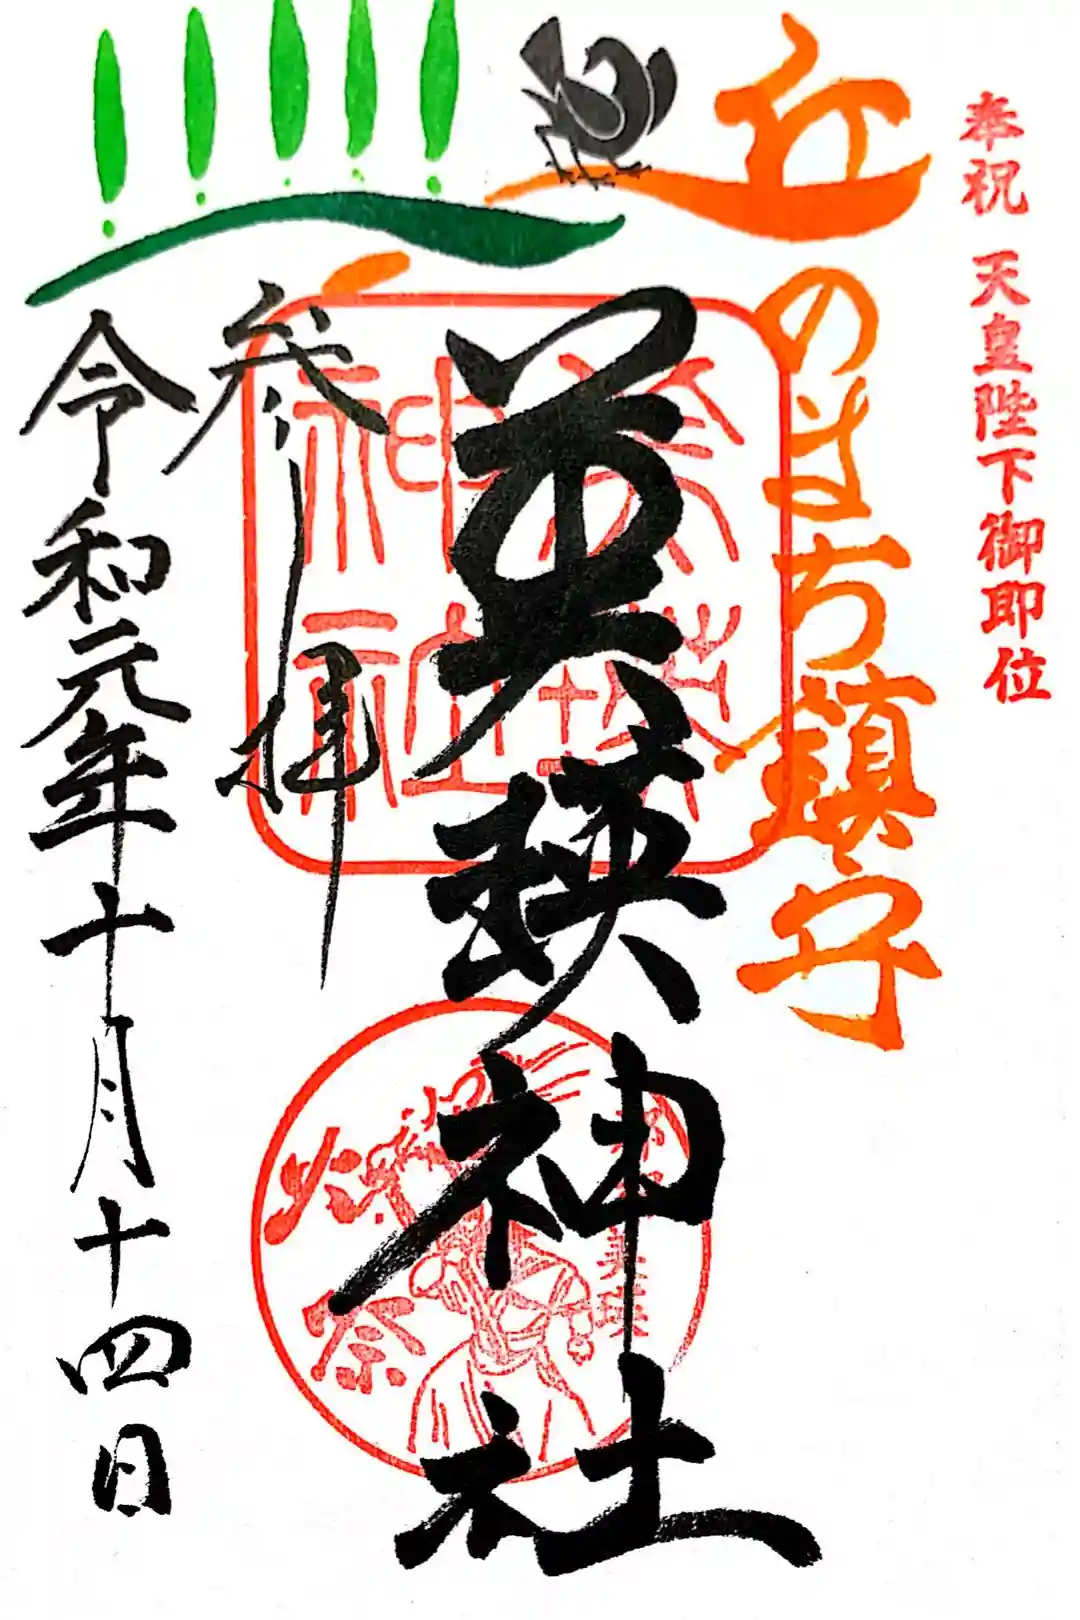 奉祝 天皇陛下御即位
丘のまち鎮守
美瑛神社
参拝
令和元年十月十四日
美瑛
神社
美瑛
火祭